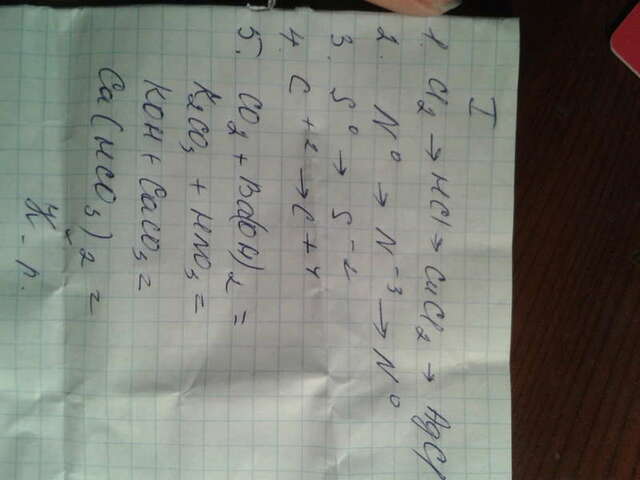 I
1. Cl2 → HCl → CuCl2 → AgCl
2. N⁰ → N⁻³ → N⁰
3. S⁰ → S⁻²
4. C⁺² → C⁺⁴
5. CO2 + Ba(OH)2 =
K2CO3 + HNO3 =
KOH + CaCO3 =
Ca(HCO3)2 =